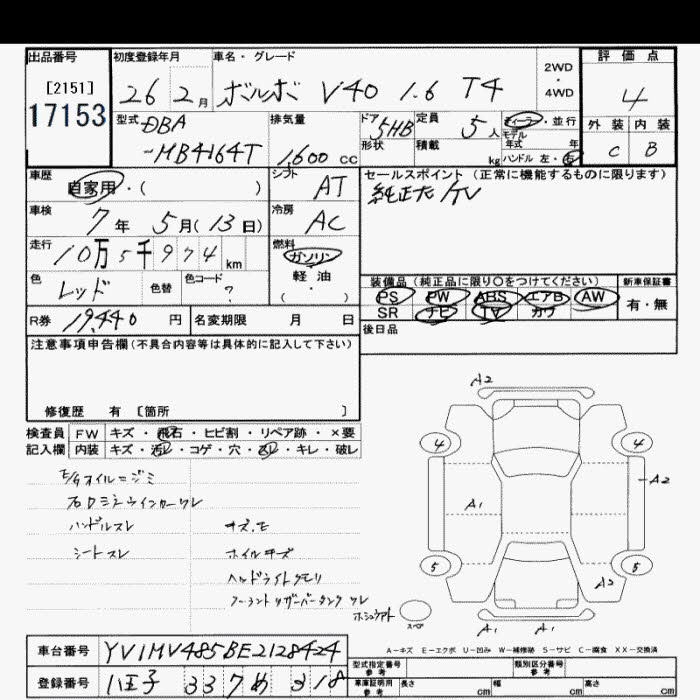 出品番号 初度登録年月 車名・グレード 2WD ・ 4WD 評価点
[2151] 26 2月 ボルボ V40 1.6 T4 4
17153
型式 DBA 排気量 ドア 5HB 定員 5人 ディーラー・並行 外装 内装
-MB4164T 1,600 cc 形状 積載 kg モデル年式 年 C B
ハンドル 左・右
車歴 自家用・( ) シフト AT セールスポイント(正常に機能するものに限ります)
純正ナビ/TV
車検 7年 5月(13日) 冷房 AC
走行 10万5千974 km 燃料 ガソリン
軽油
(・)
色 レッド 色替 色コード ?
装備品(純正品に限り○をつけてください) 新車保証書
PS PW ABS エアB AW 有・無
SR ナビ TV カワ
R券 19,440 円 名変期限 月 日
後日品
注意事項申告欄(不具合内容等は具体的に記入して下さい)
修復歴 有 〔箇所 〕
検査員 FW キズ・飛石・ヒビ割・リペア跡・×要
記入欄 内装 キズ・汚れ・コゲ・穴・スレ・キレ・破レ
E/Gオイルニジミ
右ドアミラーウインカーワレ
ハンドルスレ キズ.E
シートスレ ホイルキズ
ヘッドライトクモリ
フーラントリザーバータンクワレ
A2
4 4
A2
A1
5 5
A2
スペア A1 A1
A-キズ E-エクボ U-凹み W-補修跡 S-サビ C-腐食 XX-交換済
車台番号 YV1MV485BE2128424
登録番号 八王子 337 め 318
型式指定番号 参考 類別区分番号 参考
車庫証明用 参考 長さ cm 幅 cm 高さ cm